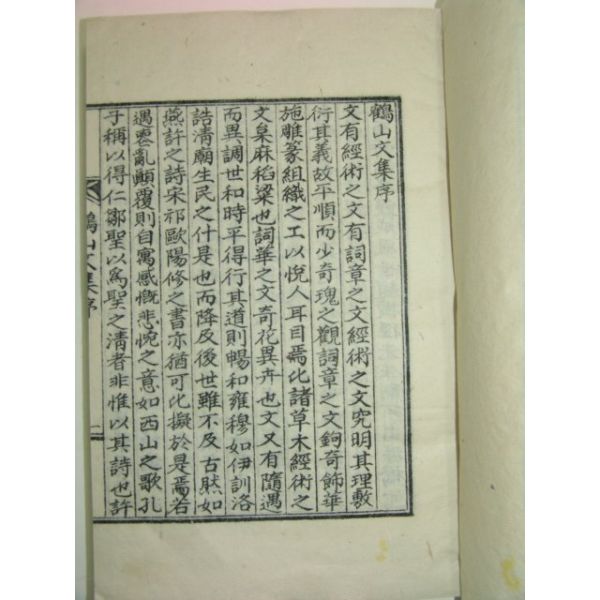 鶴山文集序
文有經術之文有詞章之文經術之文究明其理敷
衍其義故平順而少奇瑰之觀詞章之文鉤奇飾華
施雕篆組織之工以悅人耳目焉比諸草木經術之
文枲麻稻粱也詞華之文奇花異卉也文又有隨遇
而異調世和時平得行其道則暢和雍穆如伊訓洛
誥清廟生民之什是也而降及後世雖不及古然如
燕許之詩宋祁歐陽修之書亦猶可比擬於是焉若
遇喪亂顚覆則自寓感慨悲惋之意如西山之歌孔
子稱以得仁鄒聖以爲聖之淸者非惟以其詩也許
鶴山文集序